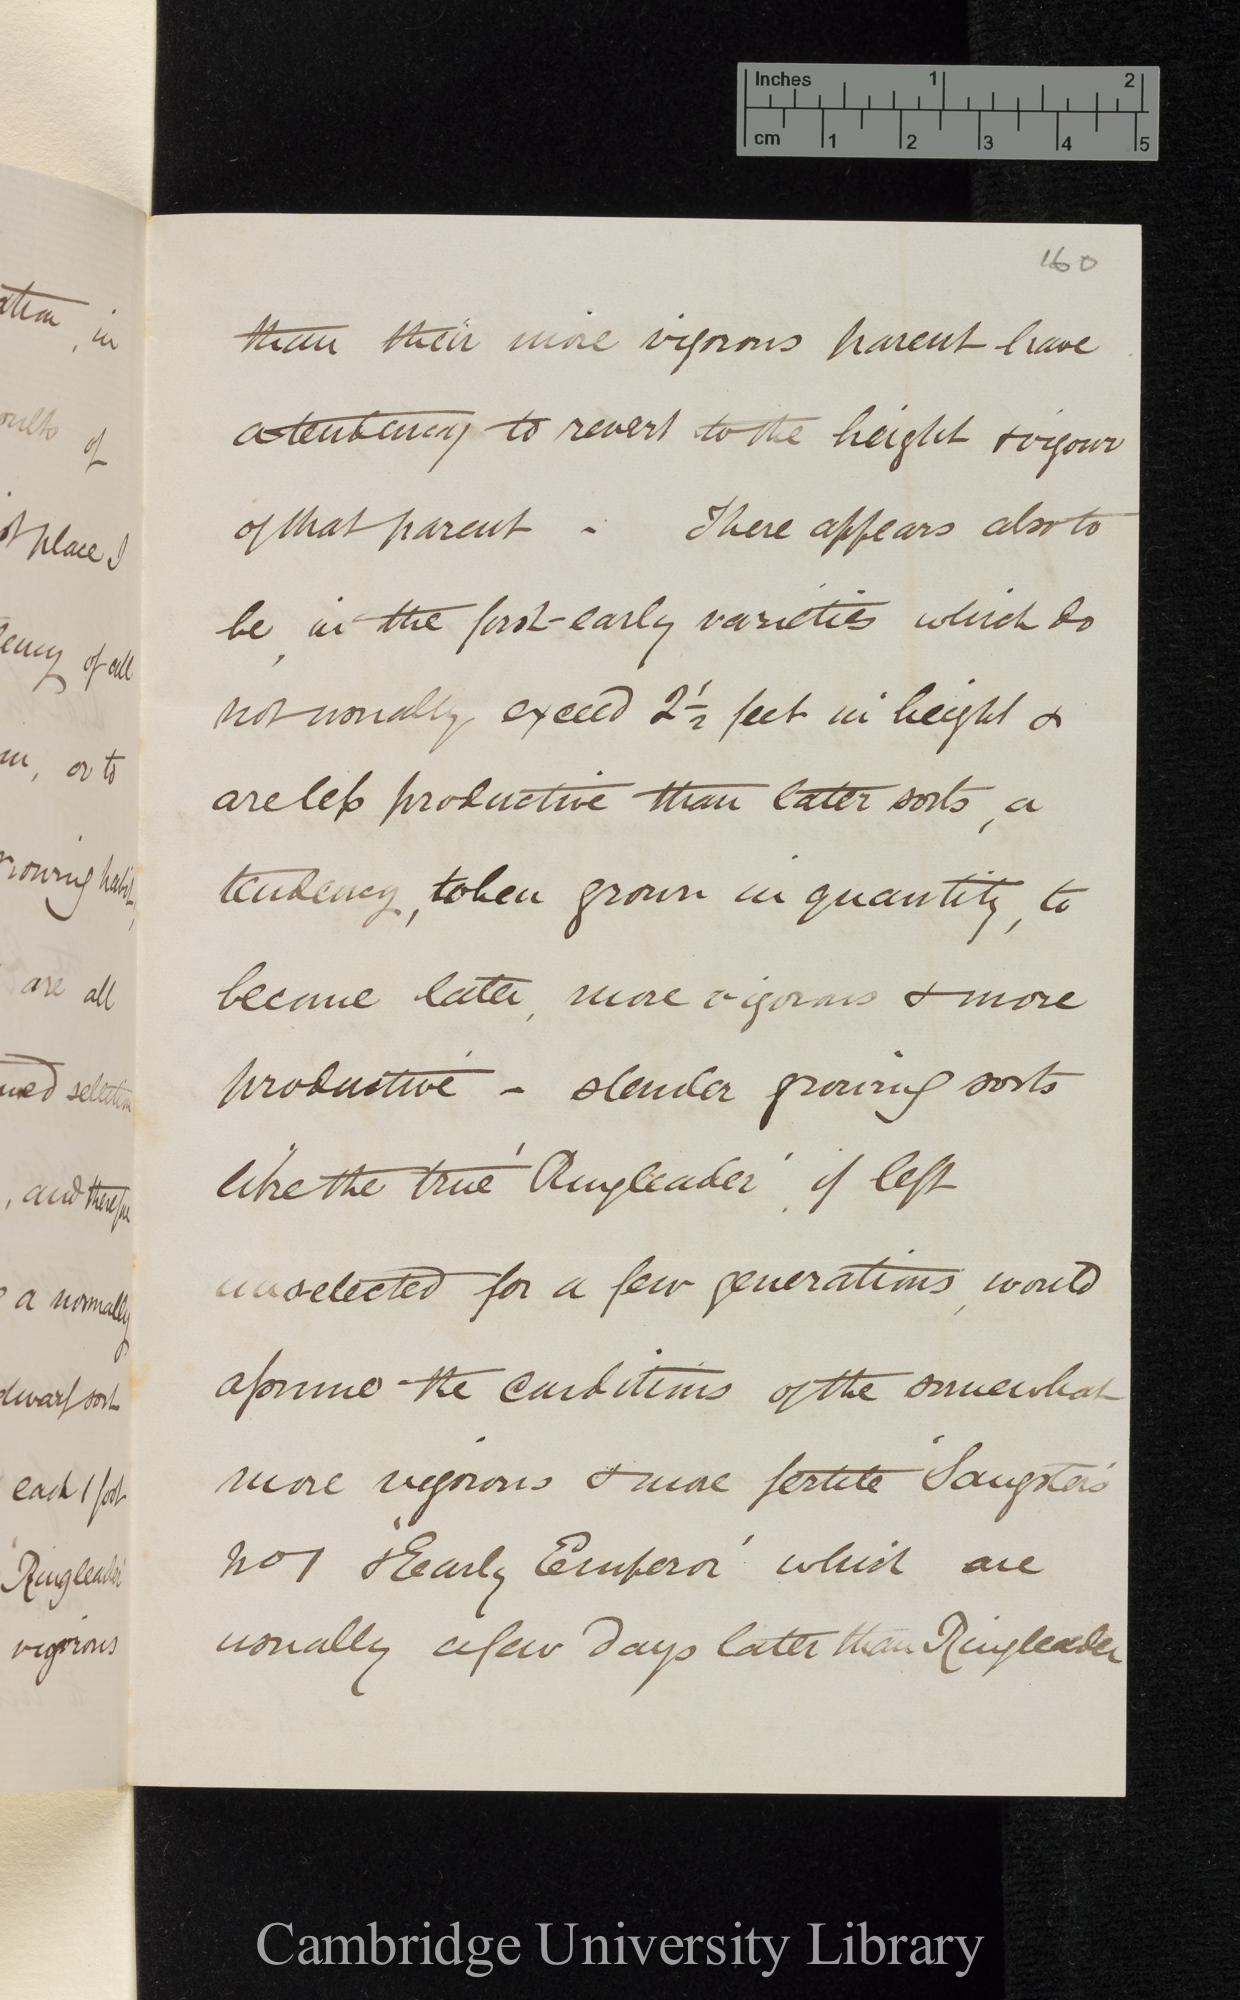 Inches 1 2
cm 1 2 3 4 5
160
than their more vigorous parent have
a tendency to revert to the height & vigour
of that parent - There appears also to
be, in the first-early varieties which do
not usually exceed 2½ feet in height &
are less productive than later sorts, a
tendency, when grown in quantity, to
become later, more vigorous & more
productive - slender growing sorts
like the true 'Ringleader', if left
unselected for a few generations, would
assume the conditions of the somewhat
more vigorous & more fertile 'Sangster's
No 1 & 'Early Emperor' which are
usually a few days later than Ringleader
in
of
place I
of all
or to
growing habit,
are all
selection
, and therefore
a normally
dwarf sort
each 1 foot
'Ringleader'
vigorous
Cambridge University Library